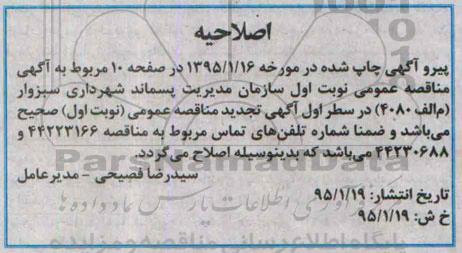 اصلاحیه
پیرو آگهی چاپ شده در مورخه ۱۳۹۵/۱/۱۶ در صفحه ۱۰ مربوط به آگهی
مناقصه عمومی نوبت اول سازمان مدیریت پسماند شهرداری سبزوار
(م‌الف ۴۰۸۰) در سطر اول آگهی تجدید مناقصه عمومی (نوبت اول) صحیح
می‌باشد و ضمنا شماره تلفن‌های تماس مربوط به مناقصه ۴۴۲۲۳۱۶۶ و
۴۴۲۳۰۶۸۸ می‌باشد که بدینوسیله اصلاح می‌گردد.
سیدرضا فصیحی - مدیرعامل
تاریخ انتشار: ۹۵/۱/۱۹
خ ش: ۹۵/۱/۱۹
ParsNamadData